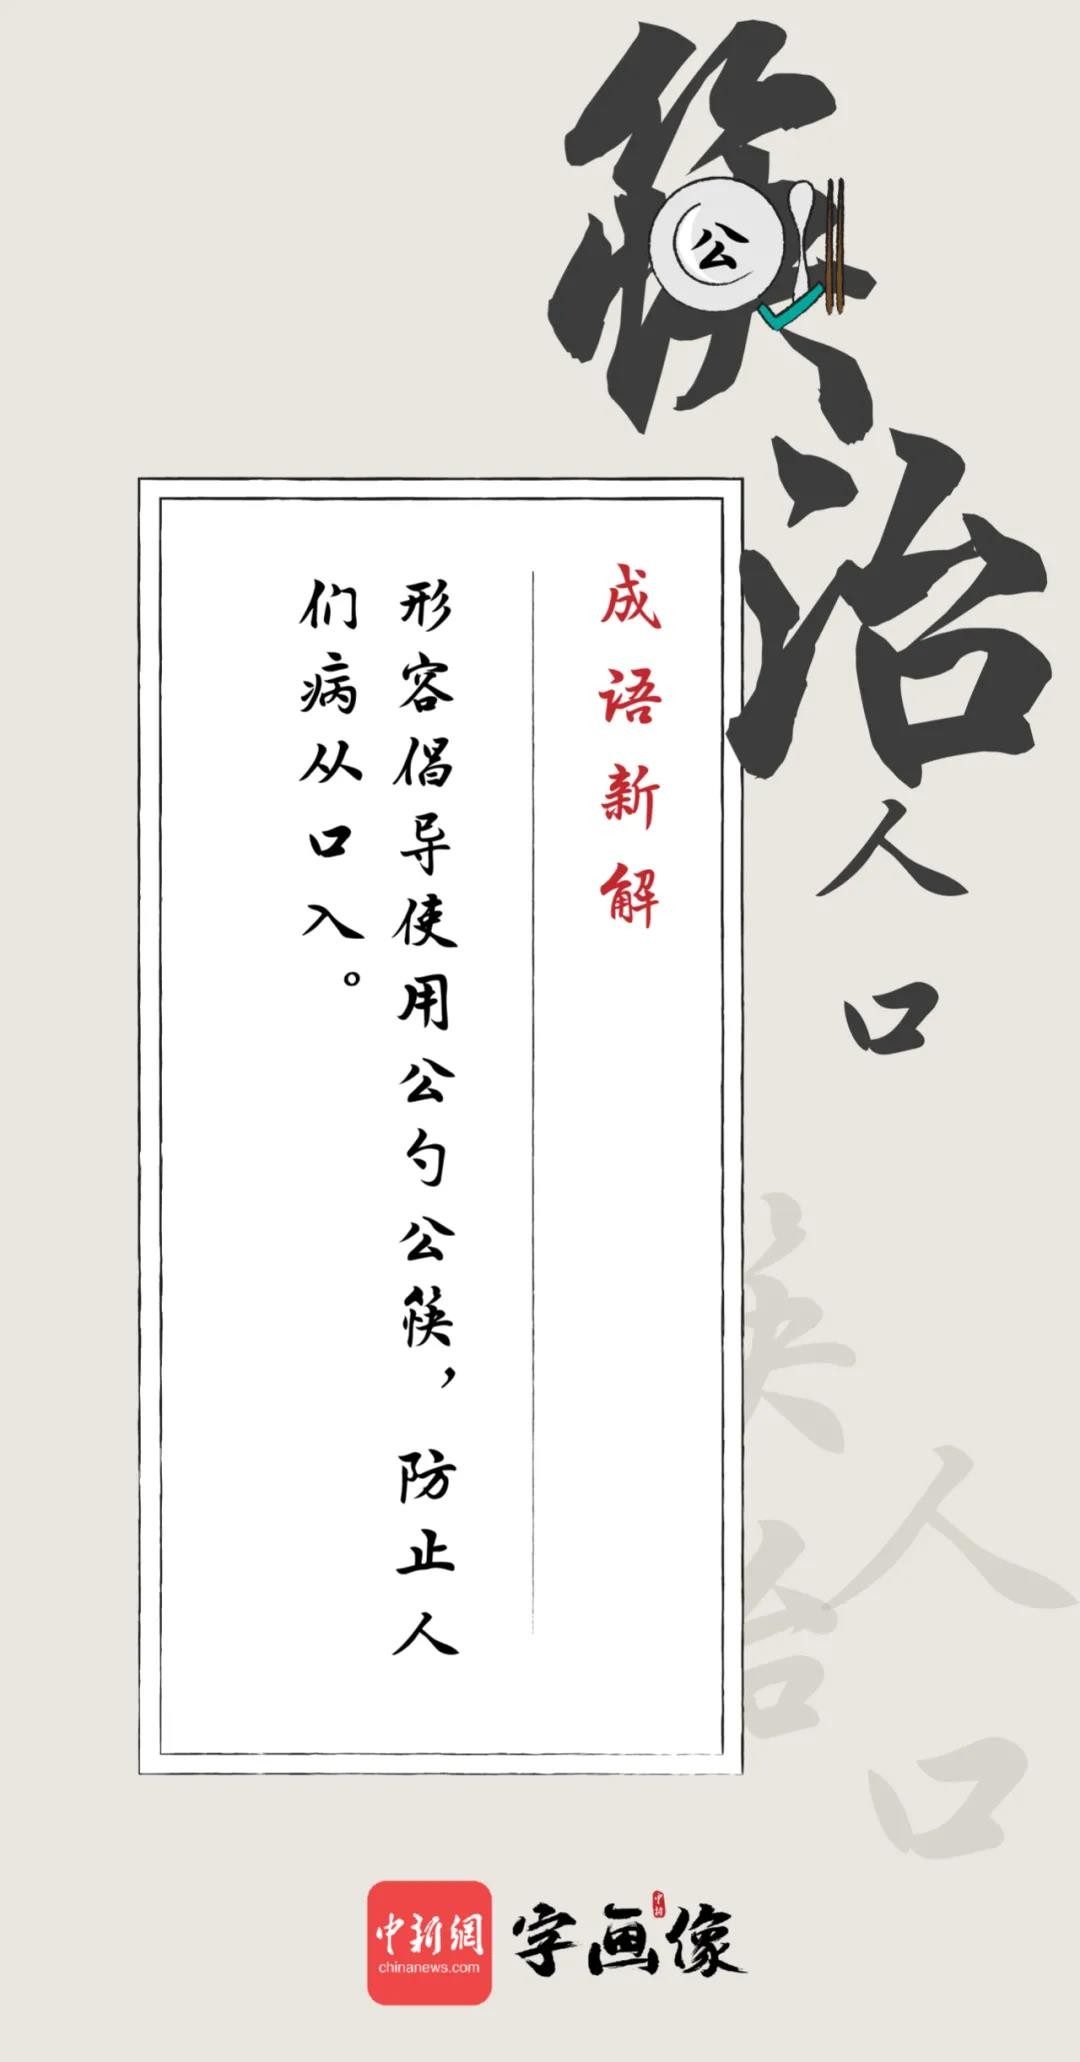 筷治人口
公
成语新解
形容倡导使用公勺公筷，防止人
们病从口入。
筷治
人口
中新網
chinanews.com
字画像